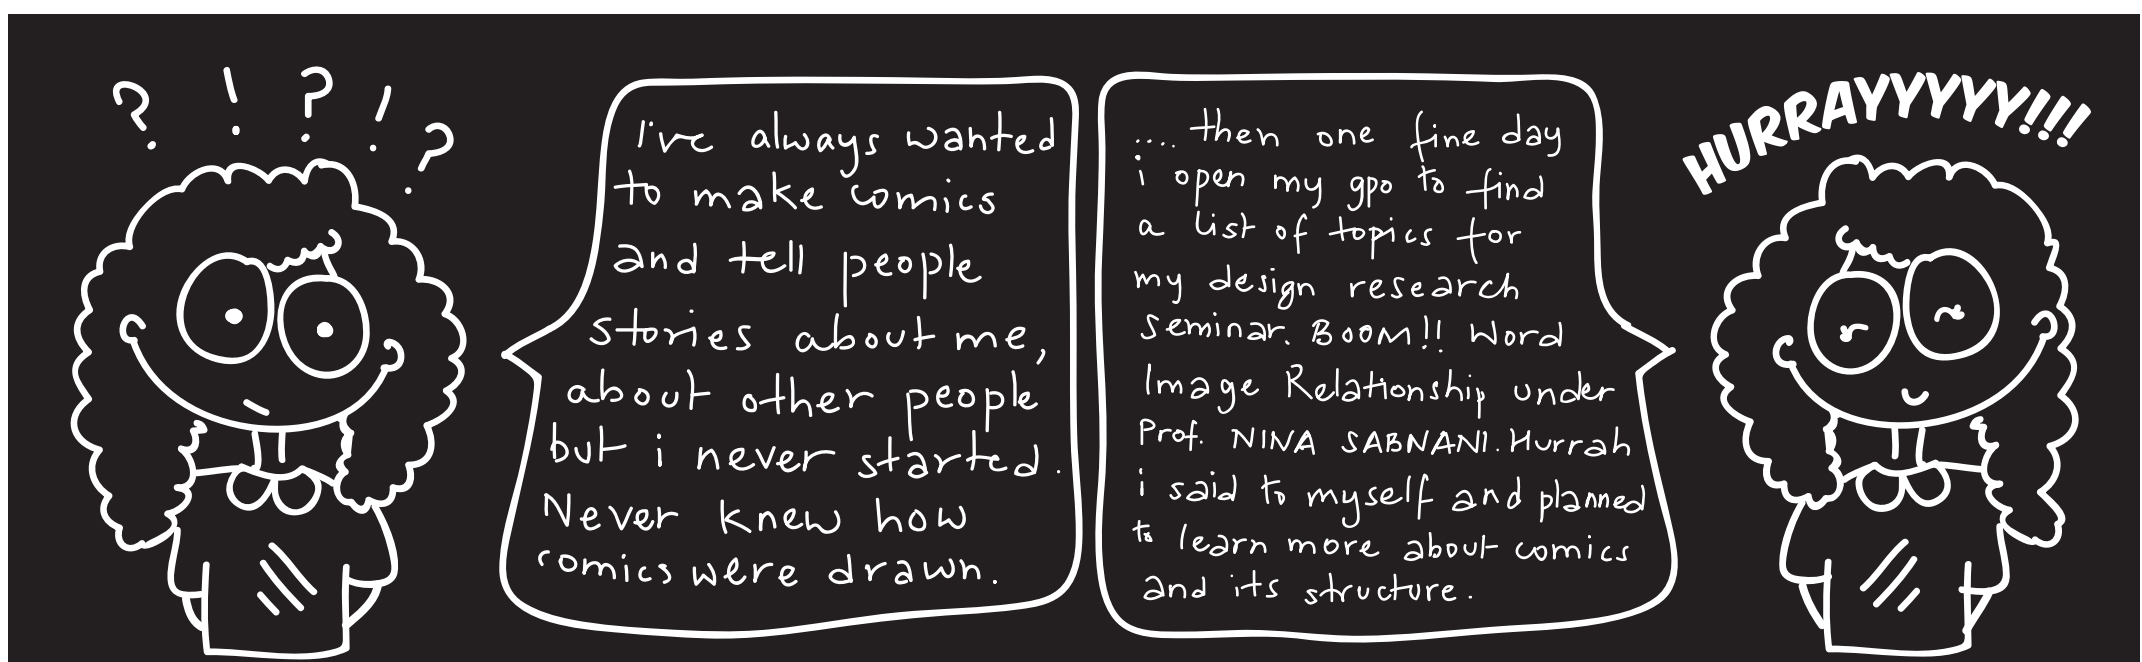 ? ! ? ! ?
I've always wanted
to make comics
and tell people
stories about me,
about other people
but i never started.
Never knew how
comics were drawn.
.... then one fine day
i open my gpo to find
a list of topics for
my design research
seminar. BOOM!! Word
Image Relationship under
Prof. NINA SABNANI. Hurrah
i said to myself and planned
to learn more about comics
and its structure.
HURRAYYYYYY!!!